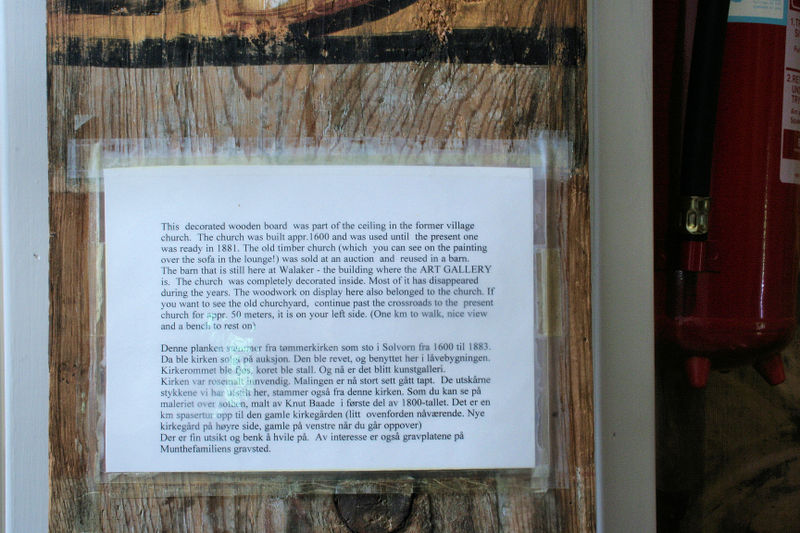 This decorated wooden board was part of the ceiling in the former village
church. The church was built appr.1600 and was used until the present one
was ready in 1881. The old timber church (which you can see on the painting
over the sofa in the lounge!) was sold at an auction and reused in a barn.
The barn that is still here at Walaker - the building where the ART GALLERY
is. The church was completely decorated inside. Most of it has disappeared
during the years. The woodwork on display here also belonged to the church. If
you want to see the old churchyard, continue past the crossroads to the present
church for appr. 50 meters, it is on your left side. (One km to walk, nice view
and a bench to rest on)
Denne planken stammer fra tømmerkirken som sto i Solvorn fra 1600 til 1883.
Da ble kirken solg på auksjon. Den ble revet, og benyttet her i låvebygningen.
Kirkerommet ble fjøs, koret ble stall. Og nå er det blitt kunstgalleri.
Kirken var rosemalt innvendig. Malingen er nå stort sett gått tapt. De utskårne
stykkene vi har utstilt her, stammer også fra denne kirken. Som du kan se på
maleriet over sofaen, malt av Knut Baade i første del av 1800-tallet. Det er en
km spasertur opp til den gamle kirkegården (litt ovenforden nåværende. Nye
kirkegård på høyre side, gamle på venstre når du går oppover)
Der er fin utsikt og benk å hvile på. Av interesse er også gravplatene på
Munthefamiliens gravsted.